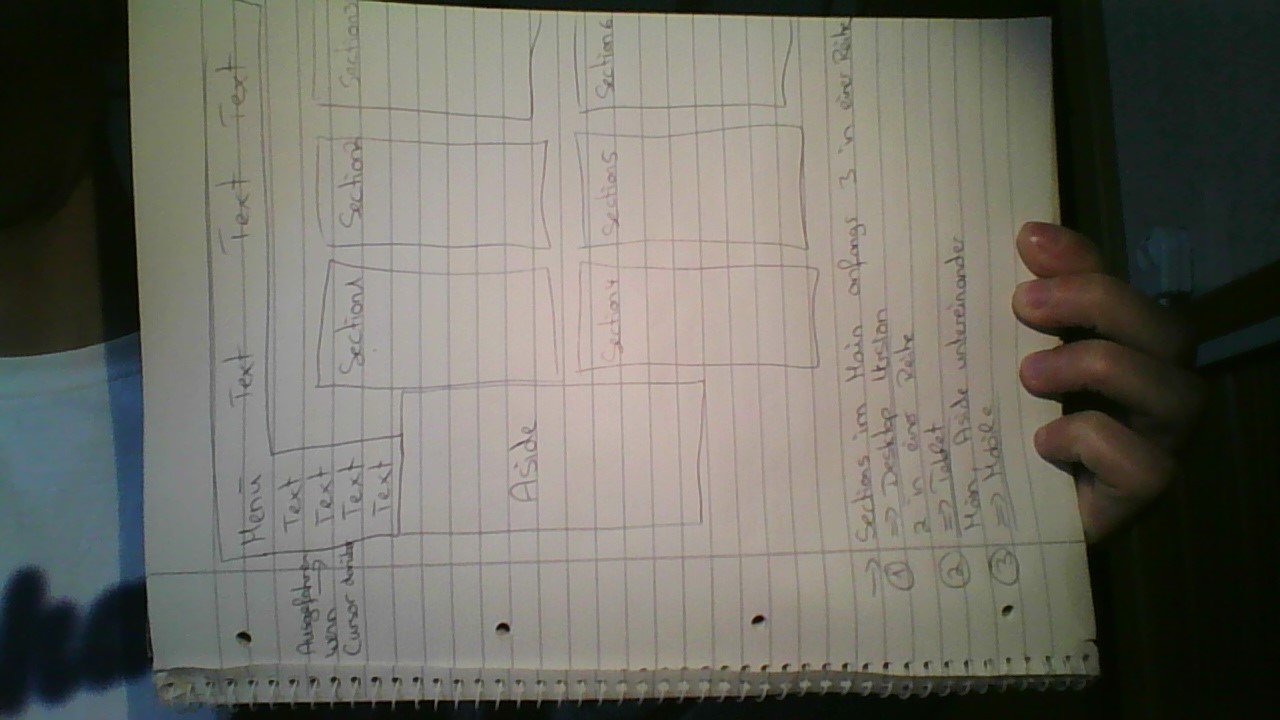 Menü Text Text Text
Text
Text
Text
Text
Ausgefahren
wenn →
Cursor darüber
Section1 Section2 Section3
Aside
Section4 Section5 Section6
→ Sections im Main anfangs 3 in einer Reihe
① => Desktop Version
2 in einer Reihe
② => Tablet
Main, Aside untereinander
③ => Mobile